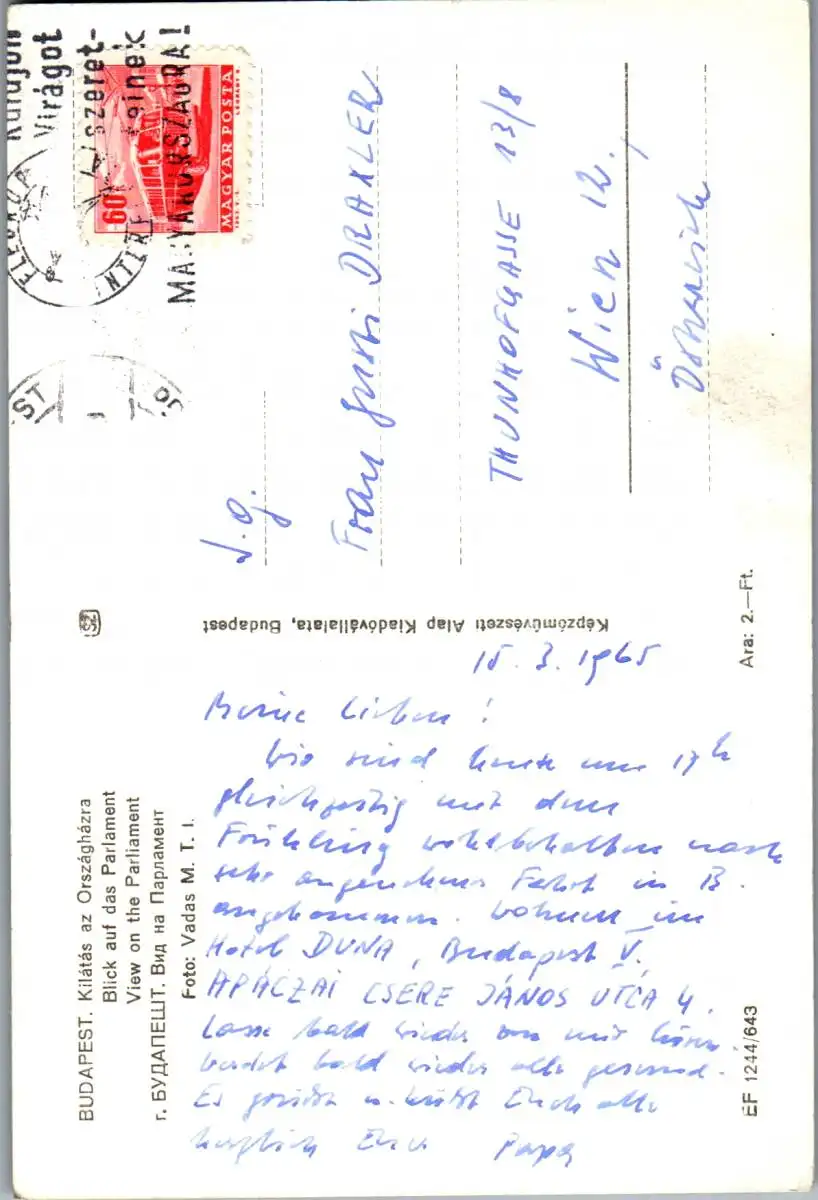 BUDAPEST. Kilátás az Országházra
Blick auf das Parlament
View on the Parliament
г. БУДАПЕШТ. Вид на Парламент
Foto: Vadas M. T. I.
15. 3. 1965
Meine Lieben!
Wir sind heute um 17h
gleichzeitig mit dem
Frühling wohlbehalten nach
sehr angenehmer Fahrt in B.
angekommen. Wohnen im
Hotel DUNA, Budapest V.
APÁCZAI CSERE JÁNOS UTCA 4.
Lasse bald wieder von mir hören
werdet bald wieder alle gesund.
Es grüsst u. küsst Euch alle
herzlich Euer Papa
EF 1244/643
Képzőművészeti Alap Kiadóvállalata, Budapest
Ára: 2.—Ft.
Virágot
szeret-
einek
MAGYARORSZÁGRA!
60
MAGYAR POSTA
Frau Gusti DRAXLER
THUNHOFGASSE 13/8
Wien 12.,
Österreich